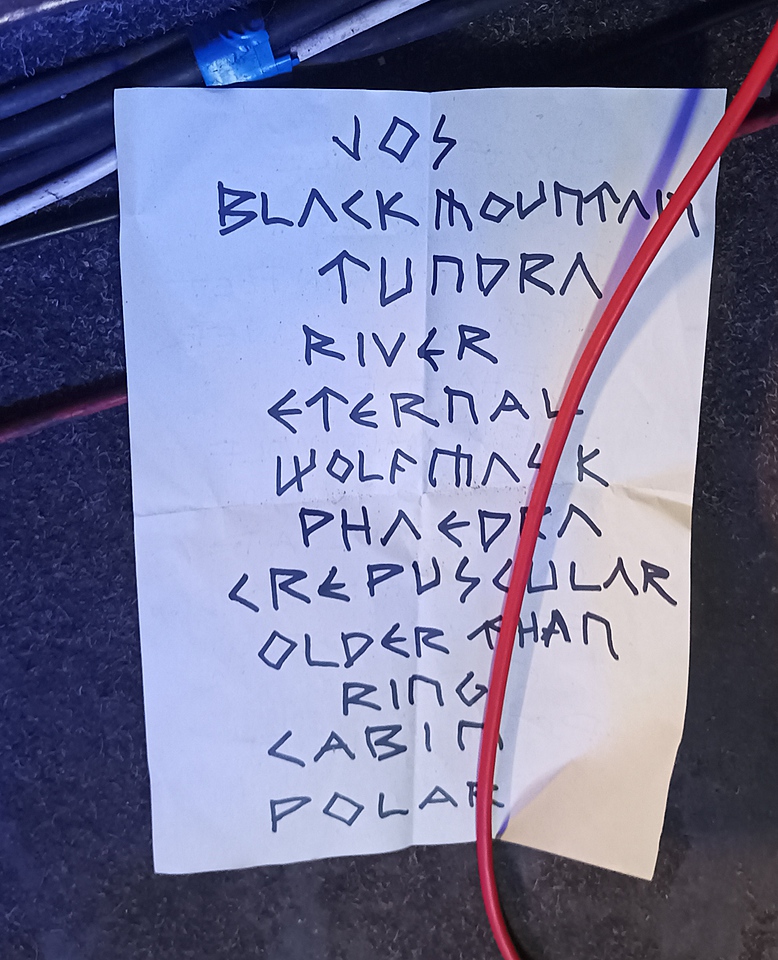 JOS
BLACK MOUNTAIN
TUNDRA
RIVER
ETERNAL
WOLFMASK
PHAEDRA
CREPUSCULAR
OLDER THAN
RING
CABIN
POLAR